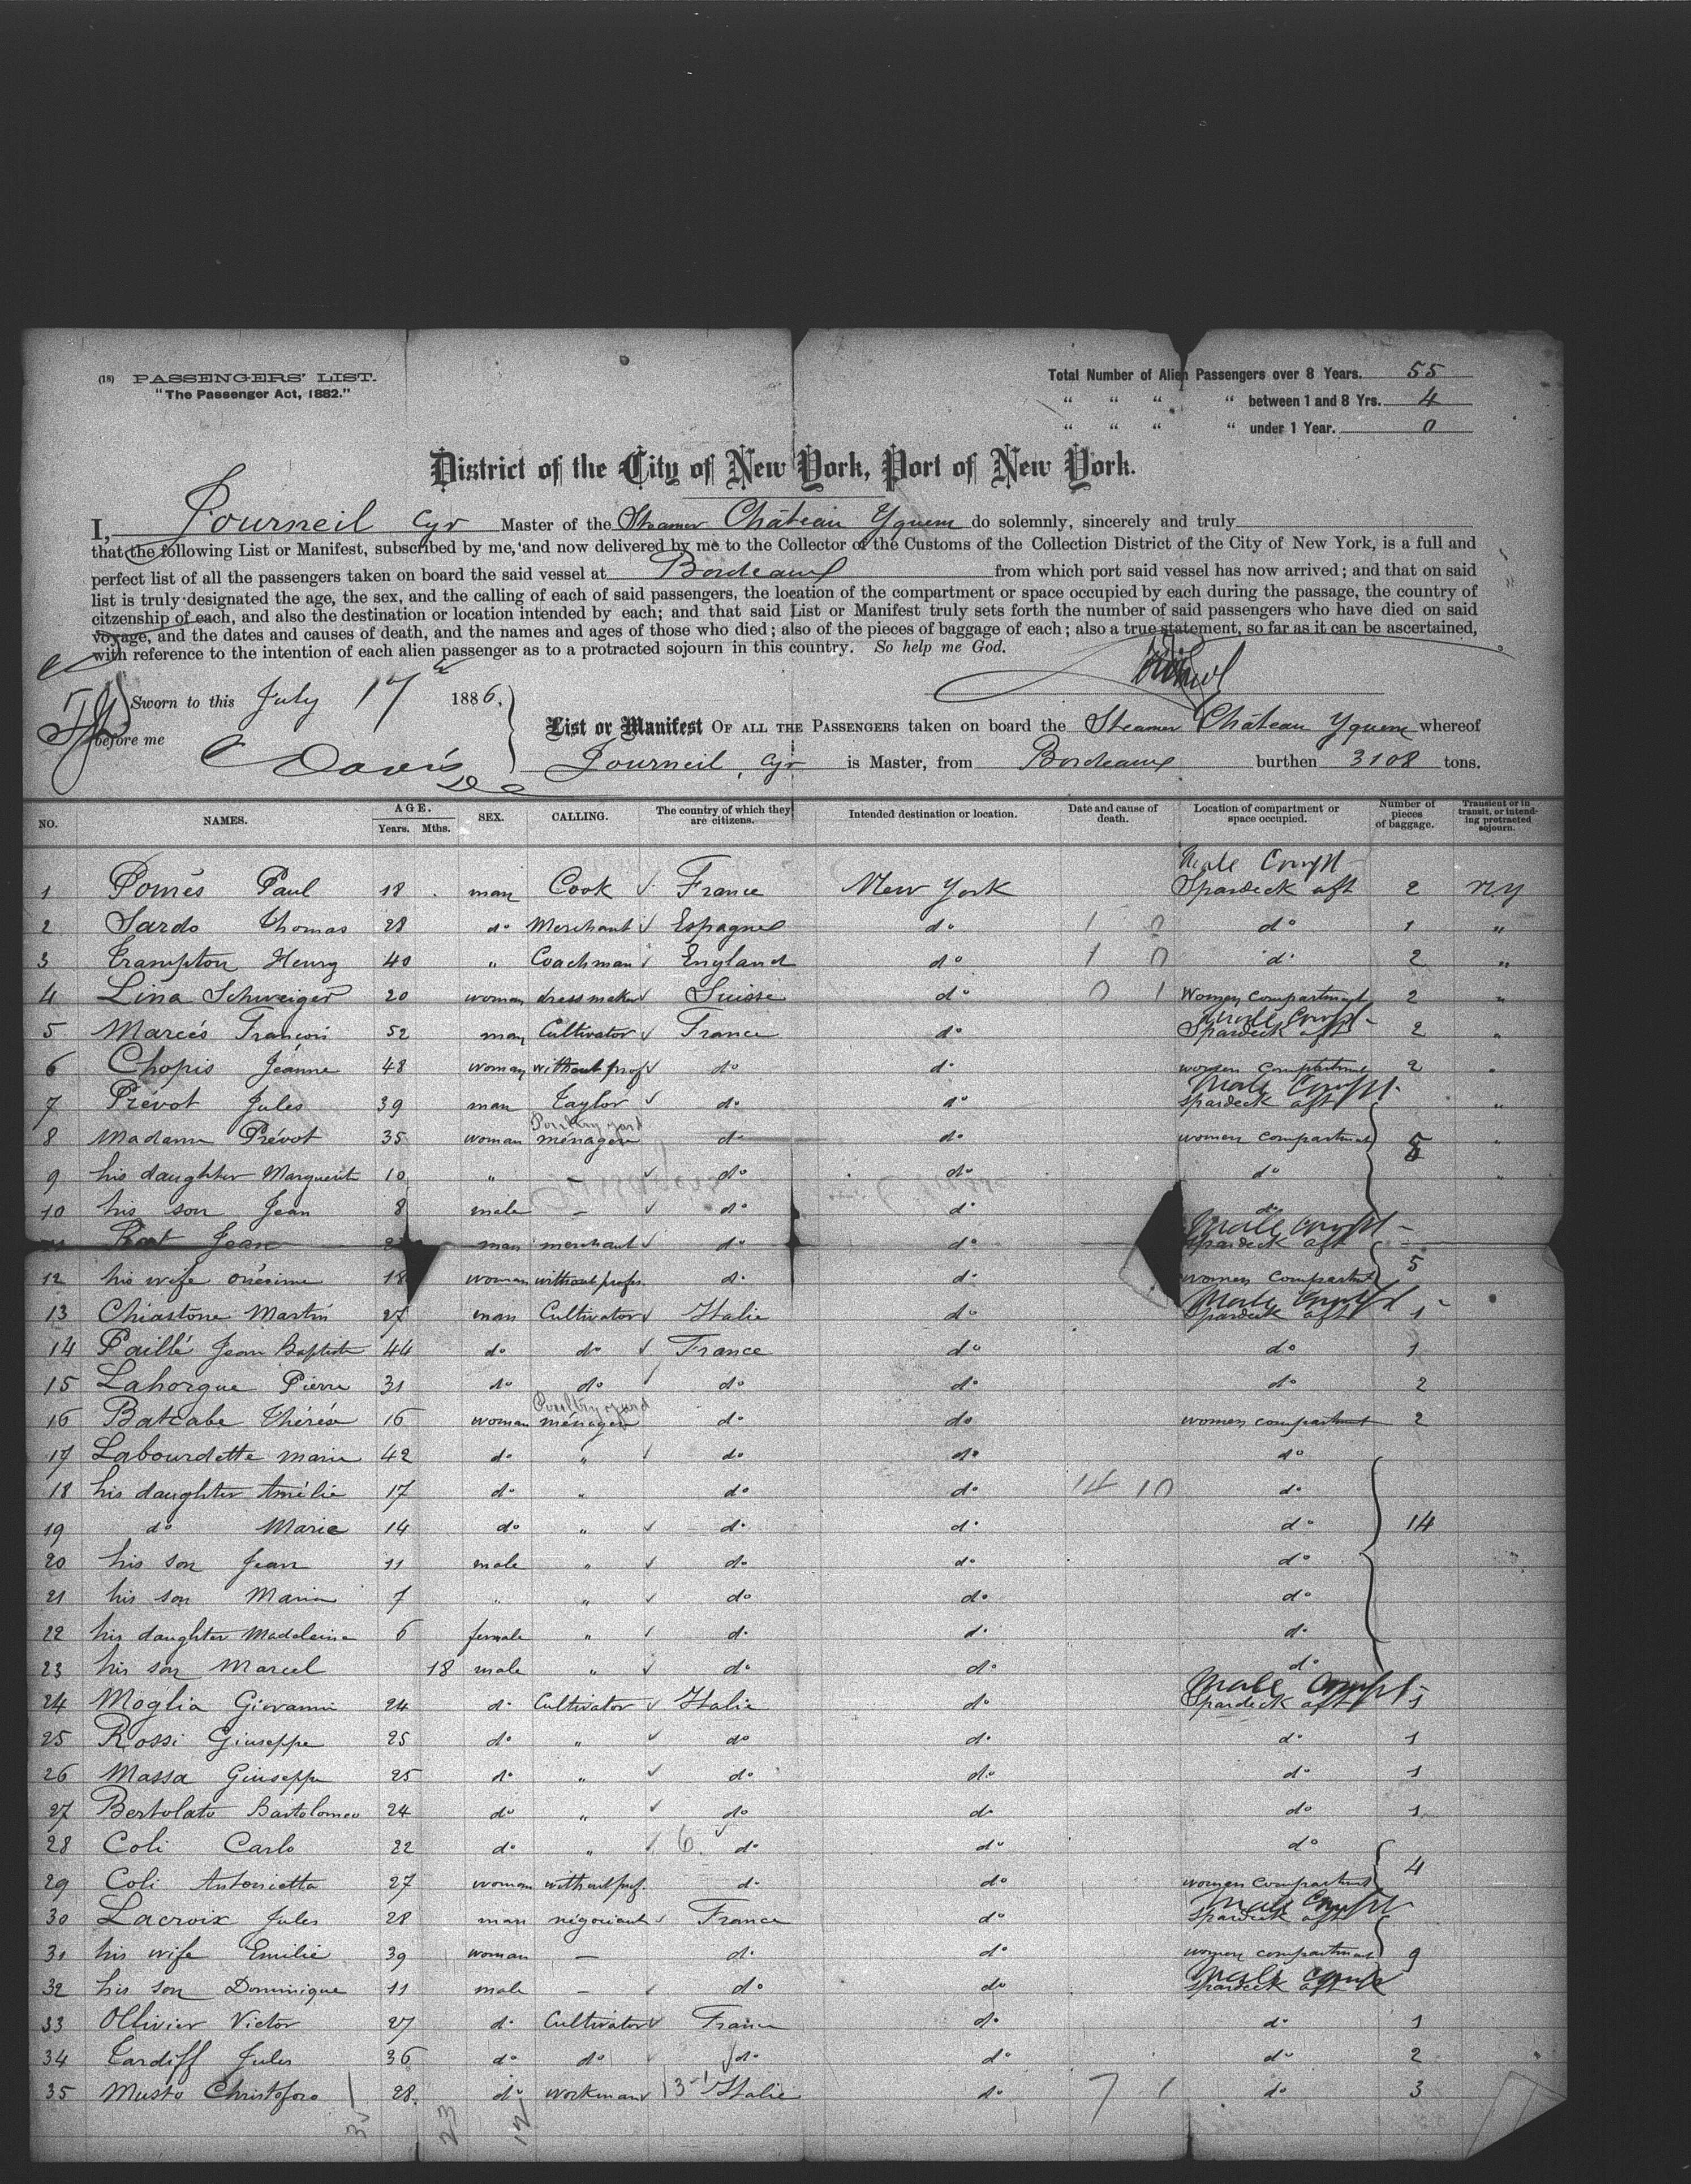 (18) PASSENGERS' LIST.
"The Passenger Act, 1882."
Total Number of Alien Passengers over 8 Years. 55
" " " " between 1 and 8 Yrs. 4
" " " " under 1 Year. 0
District of the City of New York, Port of New York.
I, Journeil Cyr Master of the Steamer Château Yquem do solemnly, sincerely and truly
that the following List or Manifest, subscribed by me, and now delivered by me to the Collector of the Customs of the Collection District of the City of New York, is a full and
perfect list of all the passengers taken on board the said vessel at Bordeaux from which port said vessel has now arrived; and that on said
list is truly designated the age, the sex, and the calling of each of said passengers, the location of the compartment or space occupied by each during the passage, the country of
citzenship of each, and also the destination or location intended by each; and that said List or Manifest truly sets forth the number of said passengers who have died on said
voyage, and the dates and causes of death, and the names and ages of those who died; also of the pieces of baggage of each; also a true statement, so far as it can be ascertained,
with reference to the intention of each alien passenger as to a protracted sojourn in this country. So help me God.
Sworn to this July 17th 1886.
before me Davis
List or Manifest OF ALL THE PASSENGERS taken on board the Steamer Château Yquem whereof
Journeil, Cyr is Master, from Bordeaux burthen 3108 tons.
NO. NAMES. AGE. Years. Mths. SEX. CALLING. The country of which they are citizens. Intended destination or location. Date and cause of death. Location of compartment or space occupied. Number of pieces of baggage. Transient or in transit, or intending protracted sojourn.
Male Compt
1 Pomés Paul 18 man Cook France New York Spardeck aft 2 N.Y
2 Sardo Thomas 28 do Merchant Espagne do 1 0 do 1 "
3 Crampton Henry 40 " Coachman England do 1 0 do 2 "
4 Lina Schweiger 20 woman dressmaker Suisse do 0 1 Women compartment 2 "
Male Compt
5 Marcés François 52 man Cultivator France do Spardeck aft 2 "
6 Chopis Jeanne 48 woman without prof do do women compartment 2 "
Male Compt
7 Prévot Jules 39 man Taylor do do spardeck aft "
Poultry yard
8 Madame Prévot 35 woman ménagere do do women compartment 5 "
9 his daughter Marguerite 10 " — do do do "
10 his son Jean 8 male — do do do
Male compt
Jean man merchant do do spardeck aft
12 his wife onésime 18 woman without profes. do do women compartmt 5
Male Compt
13 Chiastone Martin 27 man Cultivator Italie do Spardeck aft 1
14 Paillé Jean Baptiste 44 do do France do do 1
15 Lahorgue Pierre 31 do do do do do 2
Poultry yard
16 Batcabe Thérése 16 woman ménagere do do women compartment 2
17 Labourdette marie 42 do " do do do
18 his daughter Amélie 17 do " do do 14 10 do
19 do Marie 14 do " do do do 14
20 his son Jean 11 male " do do do
21 his son Marin 7 " " do do do
22 his daughter Madeleine 6 female " do do do
23 his son Marcel 18 male " do do do
Male Compt
24 Moglia Giovanni 24 do Cultivator Italie do Spardeck aft 1
25 Rossi Giuseppe 25 do " do do do 1
26 Massa Giuseppe 25 do " do do do 1
27 Bertolato Bartolomeo 24 do " do do do 1
28 Coli Carlo 22 do " 6 do do do
29 Coli Antonietta 27 woman without prof. do do women compartment 4
Male Compt
30 Lacroix Jules 28 man négociant France do spardeck aft
31 his wife Emilie 39 woman — do do women compartment 9
Male Compt
32 his son Dominique 11 male — do do spardeck aft
33 Ollivier Victor 27 do Cultivator France do do 1
34 Cardiff Jules 36 do do do do do 2
35 Musto Christoforo 28. do workman 13 Italie do 7 1 do 3
23 12